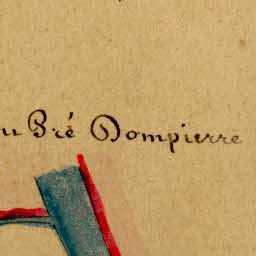 u Pré Dompierre